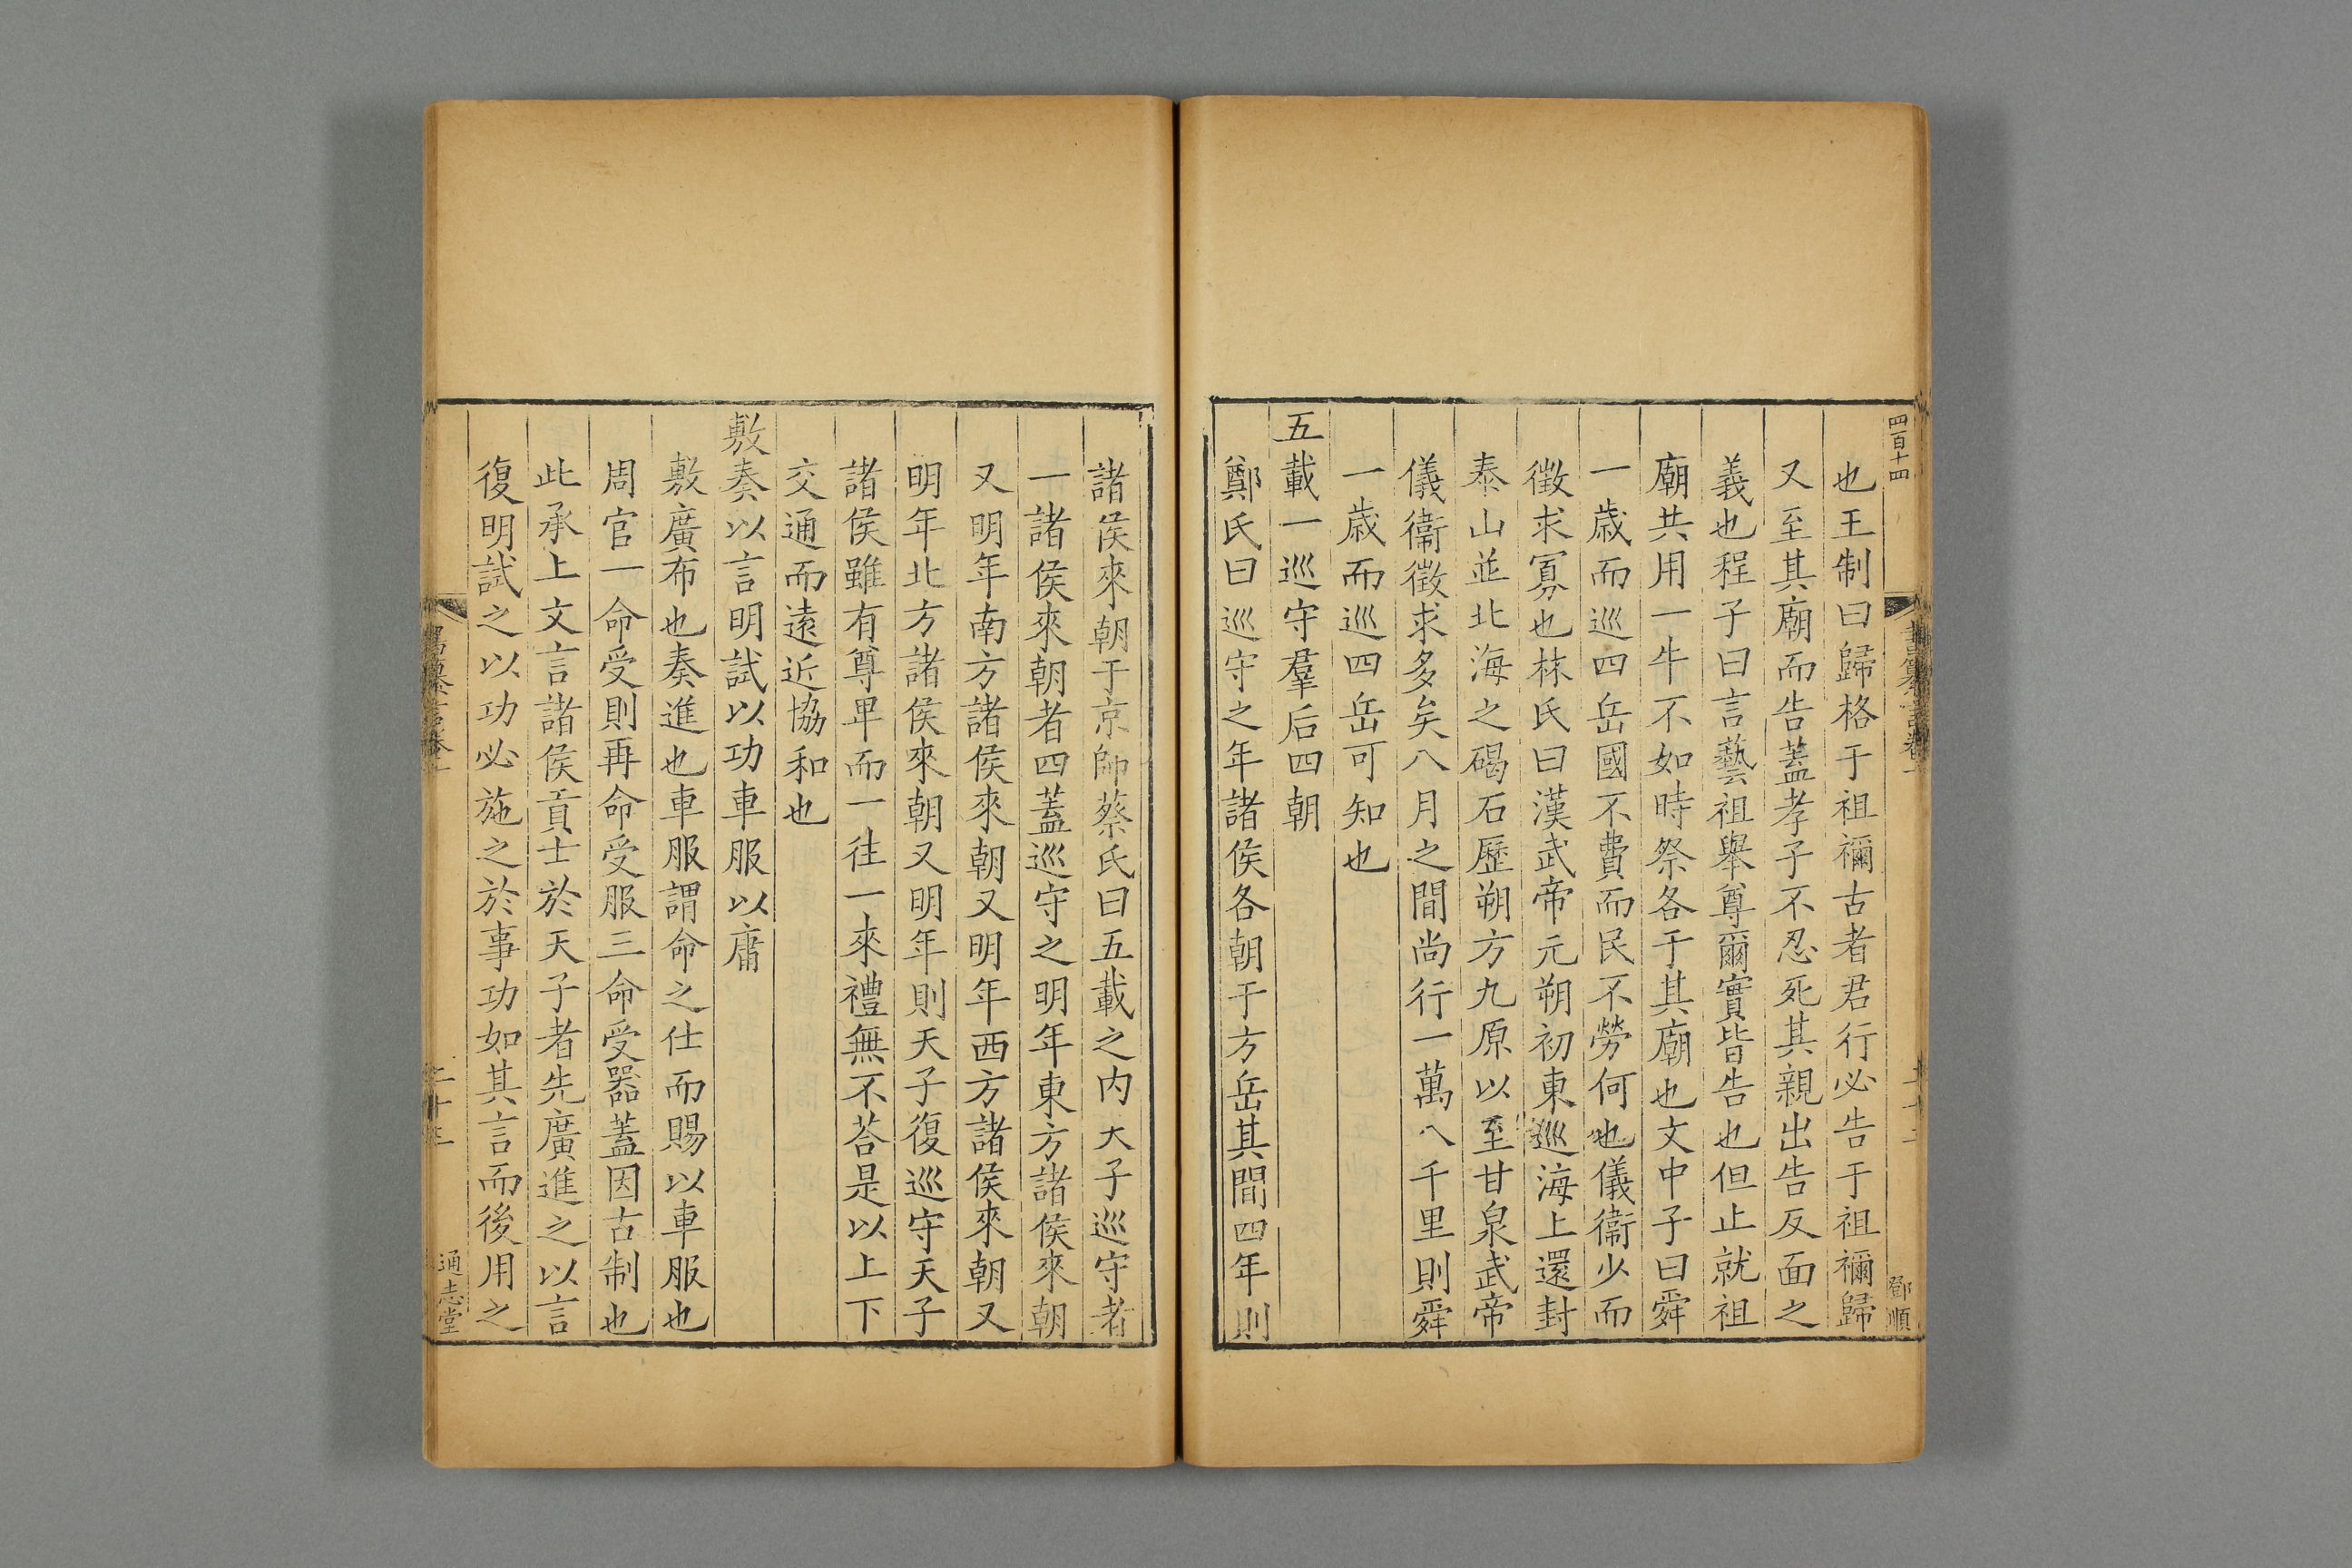 四百十四
鄧順
也王制曰歸格于祖禰古者君行必告于祖禰歸
又至其廟而告蓋孝子不忍死其親出告反面之
義也程子曰言藝祖舉尊爾實皆告也但止就祖
廟共用一牛不如時祭各于其廟也文中子曰舜
一歳而巡四岳國不費而民不勞何也儀衞少而
徵求寡也林氏曰漢武帝元朔初東巡海上還封
泰山並北海之碣石歷朔方九原以至甘泉武帝
儀衞徵求多矣八月之間尚行一萬八千里則舜
一歳而巡四岳可知也
五載一巡守羣后四朝
鄭氏曰巡守之年諸侯各朝于方岳其間四年則
諸侯來朝于京師蔡氏曰五載之内天子巡守者
一諸侯來朝者四蓋巡守之明年東方諸侯來朝
又明年南方諸侯來朝又明年西方諸侯來朝又
明年北方諸侯來朝又明年則天子復巡守天子
諸侯雖有尊卑而一往一來禮無不荅是以上下
交通而遠近協和也
敷奏以言明試以功車服以庸
敷廣布也奏進也車服謂命之仕而賜以車服也
周官一命受則再命受服三命受器蓋因古制也
此承上文言諸侯貢士於天子者先廣進之以言
復明試之以功必施之於事功如其言而後用之
通志堂